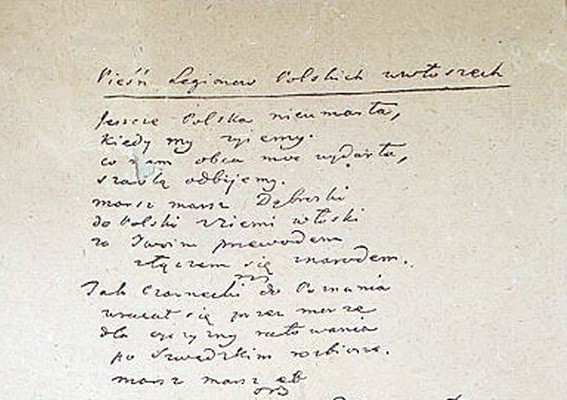 Pieśń Legionow Polskich wewłoszech
Jeszcze Polska nieumarła,
kiedy my żyiemy.
co nam obca moc wydarła,
szablą odbijemy.
marsz marsz Dąbroski
do Polski z ziemi włoski
za Twoim przewodem
złączem się znarodem.
Jak Czarnecki do Poznania
wracał się przez morze
dla ojczyzny ratowania
po Szwedzkim rozbiorze.
marsz marsz etc